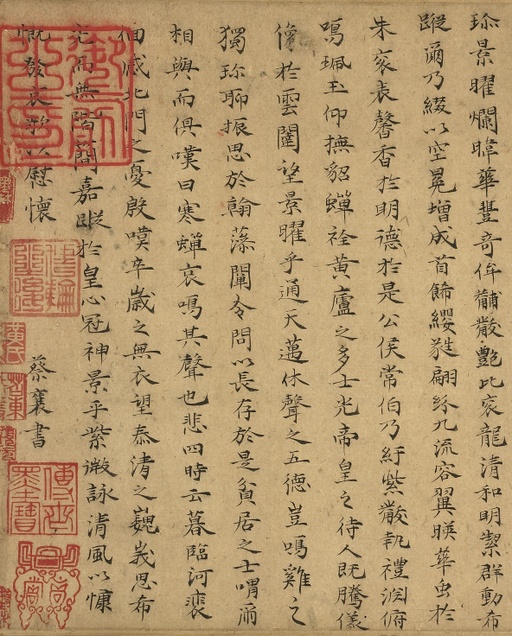 珎景曜爛暐華豐奇侔黼黻艷比衮龍清和明潔群動希
蹤爾乃綴以空冕增成首飾纓蕤翩紛九流容翼映華虫於
朱衮表馨香於明德於是公侯常伯乃紆紫黻執禮淵俯
鳴珮玉仰撫貂蟬黄廬之多士光帝皇之待人既騰儀
像於雲闥望景曜乎通天邁休聲之五德豈鳴雞之
獨珎聊振思於翰藻闡令問以長存於是貧居之士喟爾
相與而俱嘆曰寒蟬哀鳴其聲也悲四時云暮臨河裴
徊感北門之憂殷嘆卒歲之無衣望泰清之巍峩思希
光而無階簡嘉蹤於皇心冠神景乎紫微詠清風以慷
慨發哀歌以慰懷
蔡襄書